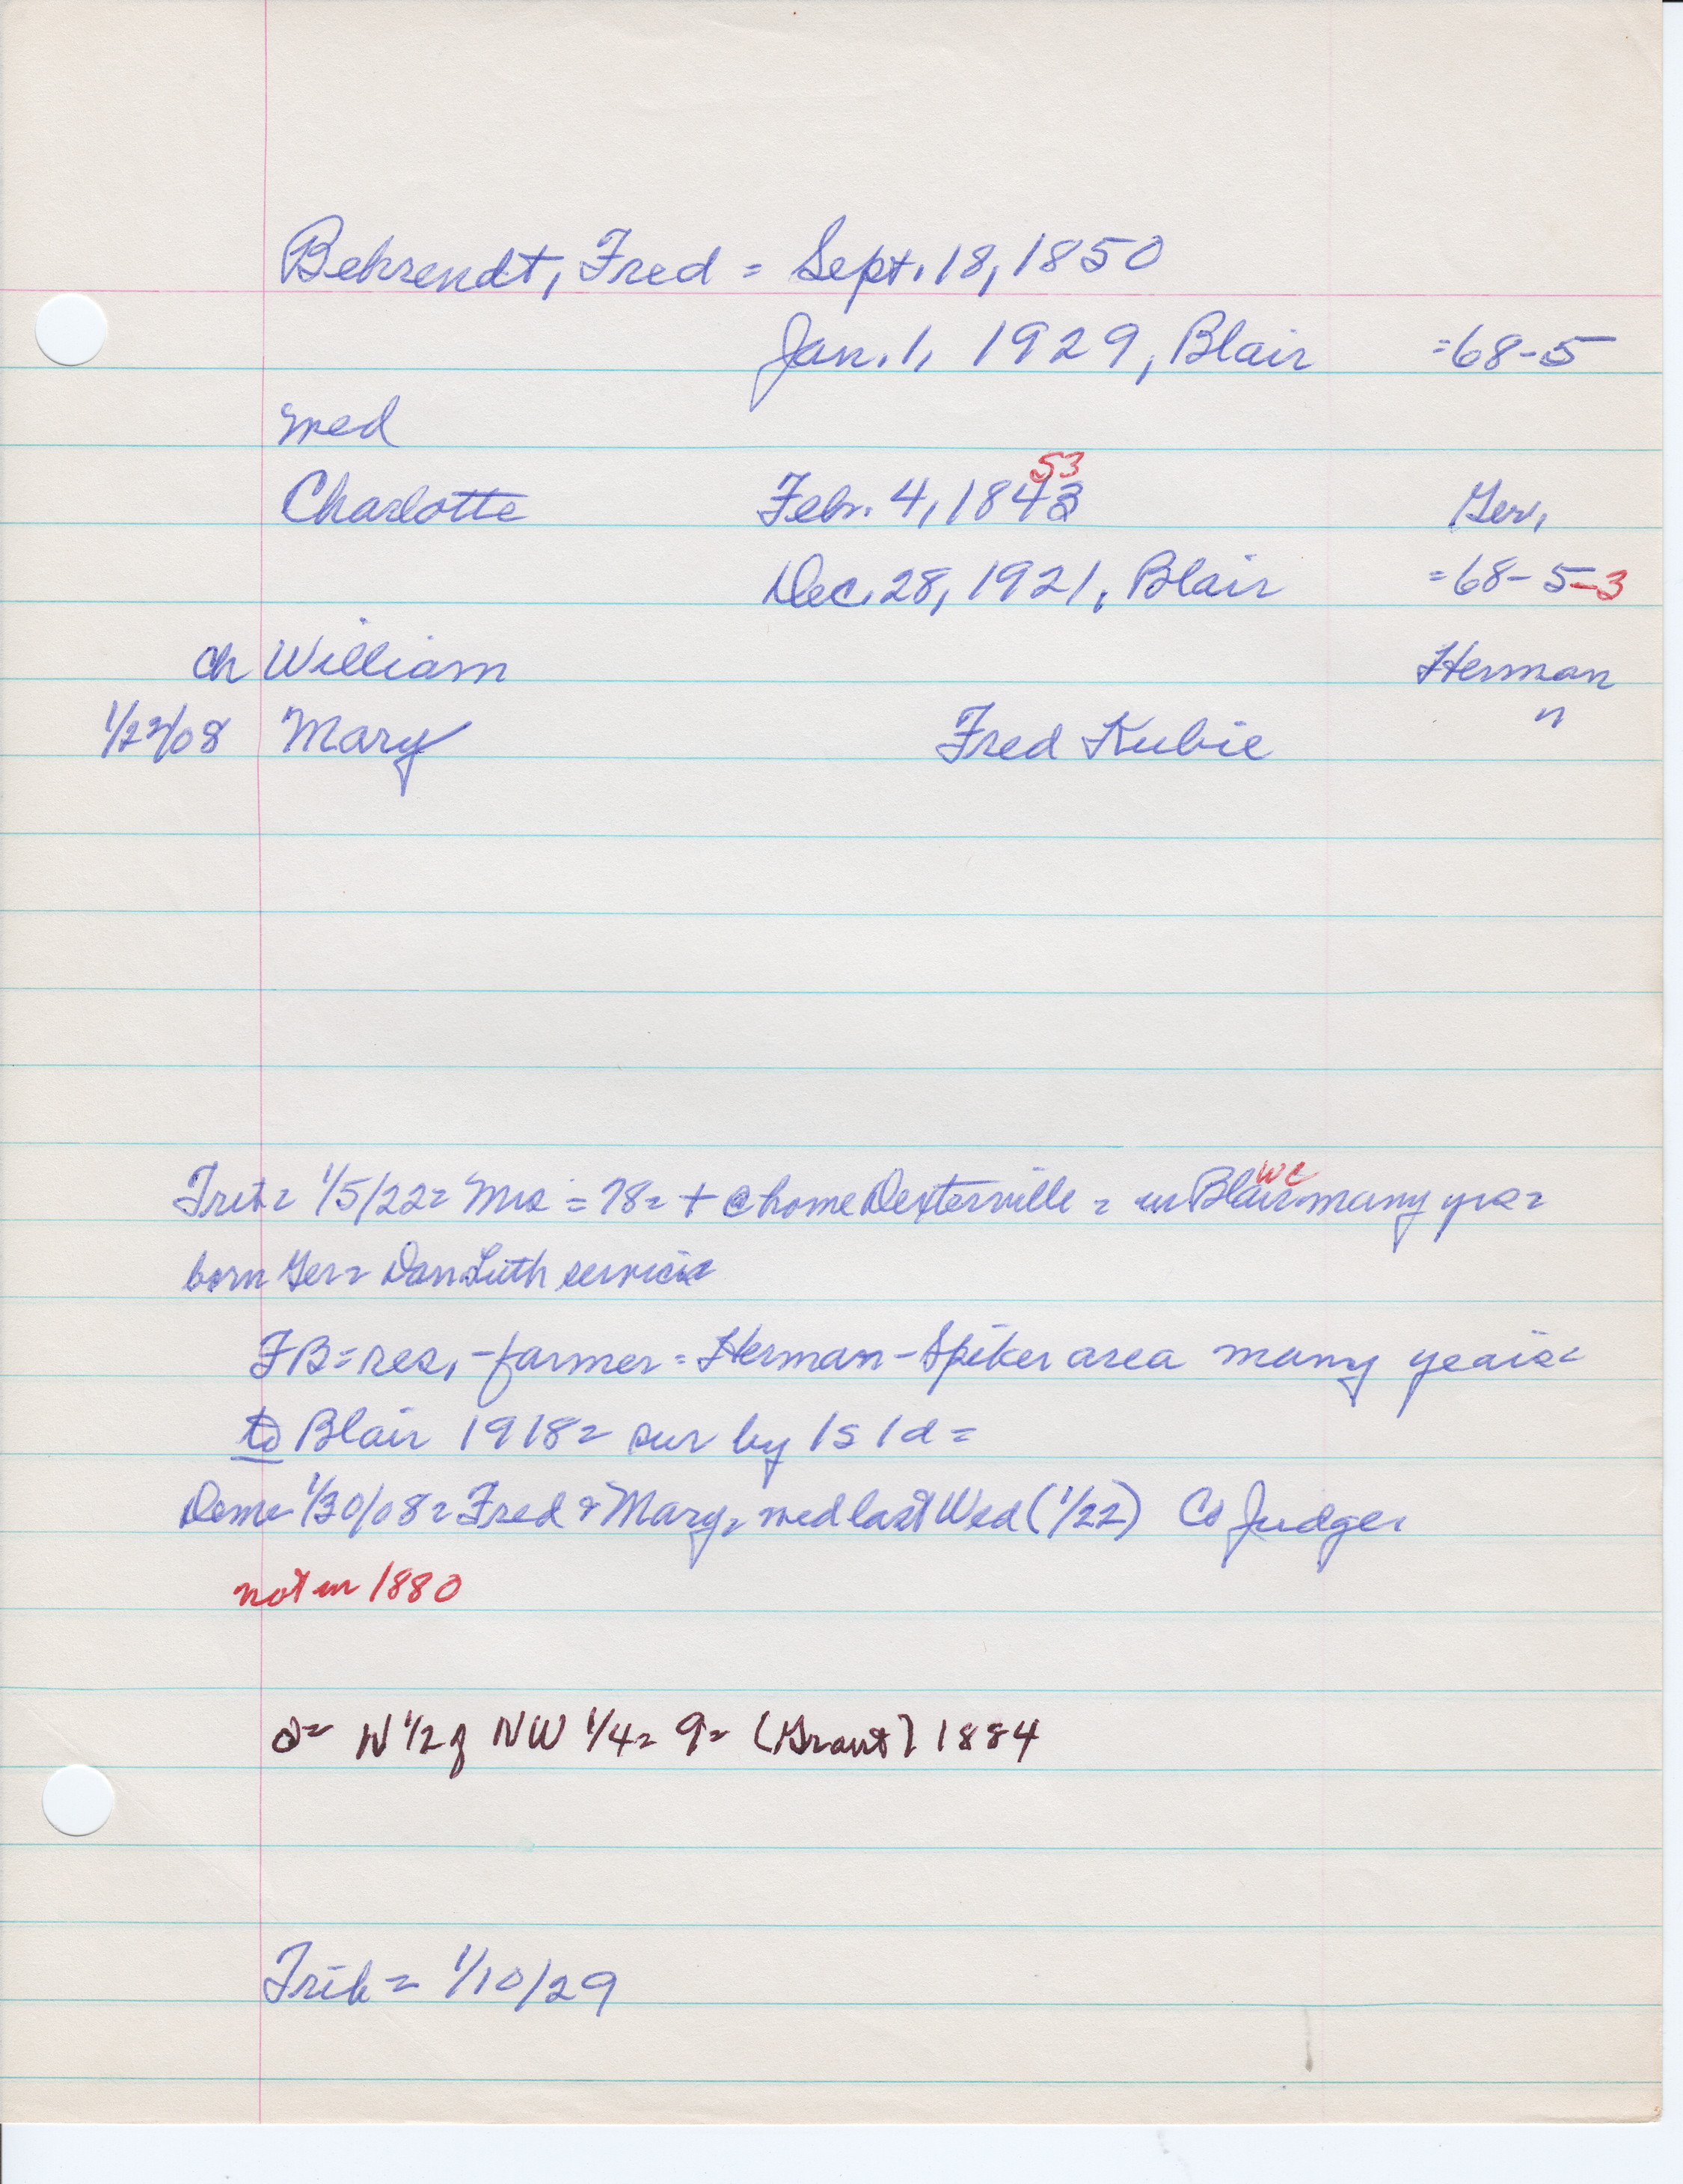 Behrendt, Fred = Sept. 18, 1850
Jan. 1, 1929, Blair =68-5
med
Charlotte Febr. 4, 1843 53 Ger.
Dec. 28, 1921, Blair =68-5-3
ch William Herman
1/22/08 Mary Fred Kubie "
Trib= 1/5/22= Mrs = 78= + @ home Dexterville = in Blair WC many yrs=
born Ger= Dan Luth service
FB=res, -farmer= Herman-Spiker area many years=
to Blair 1918= sur by 1s 1d=
Dem= 1/30/08= Fred & Mary, med last Wed (1/22) Co Judge=
not in 1880
o= W 1/2 of NW 1/4= 9= (Grant) 1884
Trib= 1/10/29